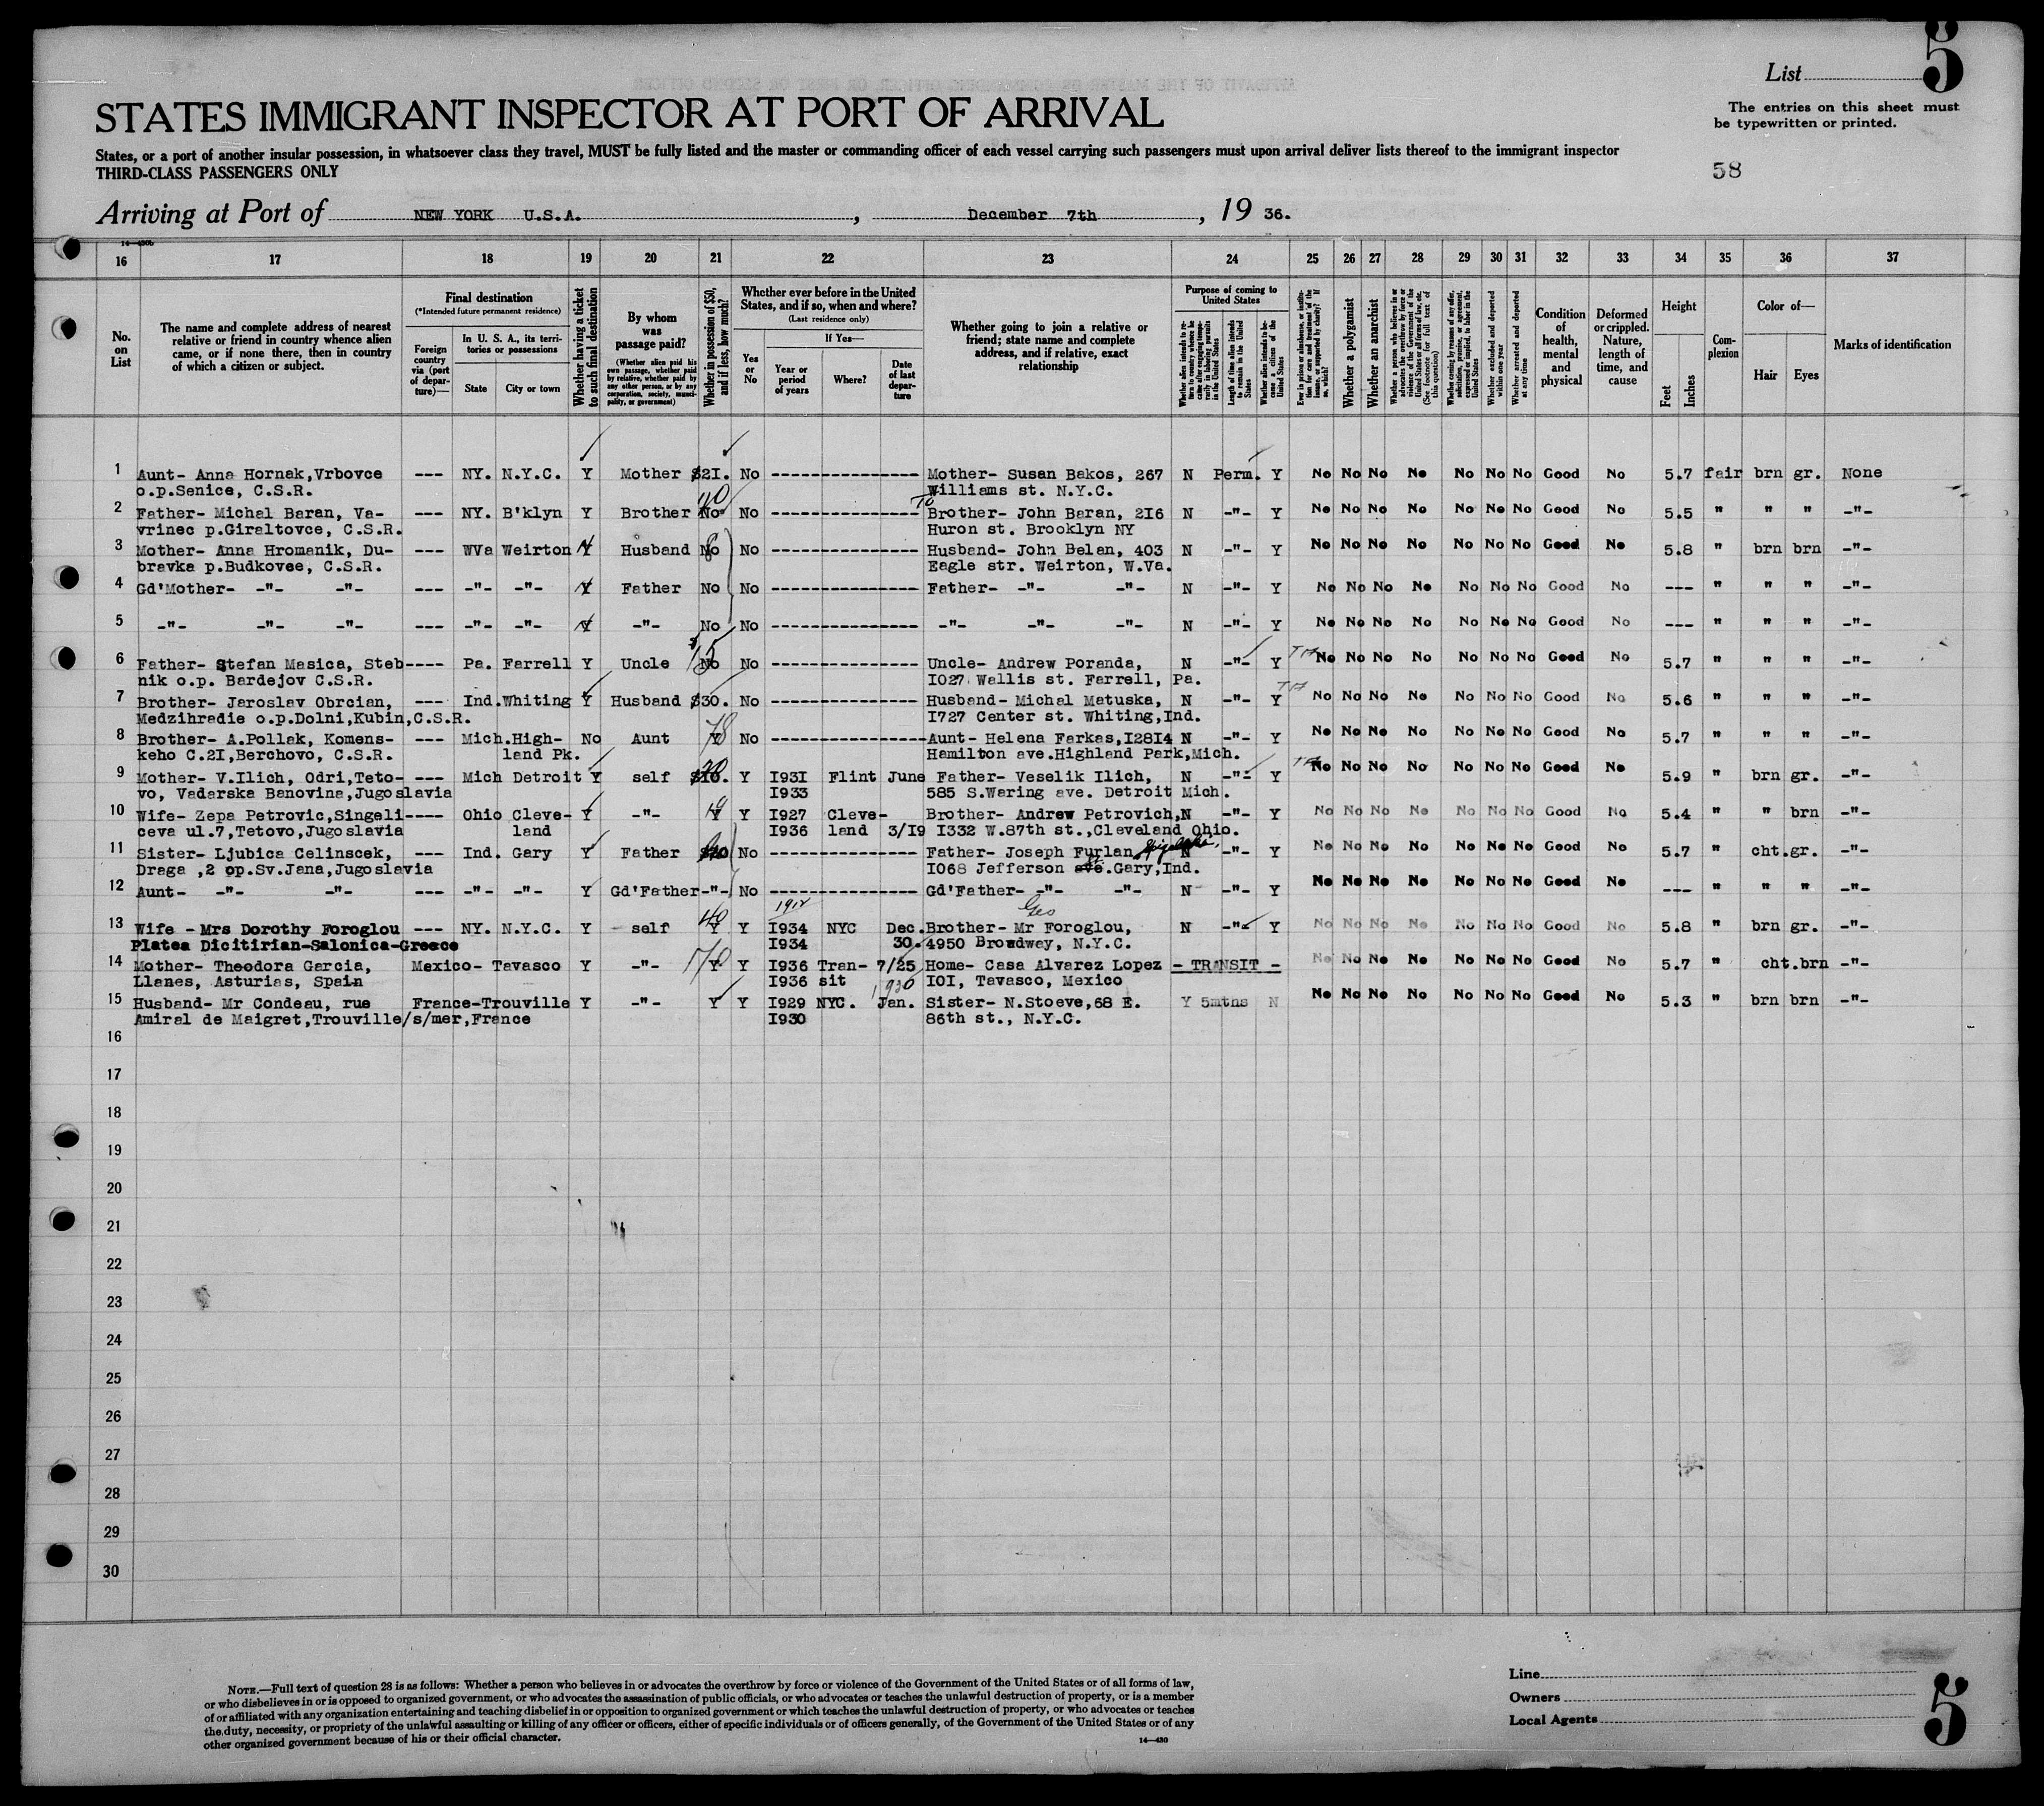 List 5
STATES IMMIGRANT INSPECTOR AT PORT OF ARRIVAL
The entries on this sheet must
be typewritten or printed.
States, or a port of another insular possession, in whatsoever class they travel, MUST be fully listed and the master or commanding officer of each vessel carrying such passengers must upon arrival deliver lists thereof to the immigrant inspector
THIRD-CLASS PASSENGERS ONLY
58
Arriving at Port of NEW YORK U.S.A. , December 7th , 19 36.
16 17 18 19 20 21 22 23 24 25 26 27 28 29 30 31 32 33 34 35 36 37
No. on List
The name and complete address of nearest relative or friend in country whence alien came, or if none there, then in country of which a citizen or subject.
Final destination
(*Intended future permanent residence)
Foreign country via (port of departure)—
In U. S. A., its territories or possessions
State City or town
Whether having a ticket to such final destination
By whom was passage paid?
(Whether alien paid his own passage, whether paid by relative, whether paid by any other person, or by any corporation, society, municipality, or government)
Whether in possession of $50, and if less, how much?
Whether ever before in the United States, and if so, when and where?
(Last residence only)
Yes or No
If Yes—
Year or period of years Where? Date of last departure
Whether going to join a relative or friend; state name and complete address, and if relative, exact relationship
Purpose of coming to United States
Length of time alien intends to remain in the United States
Whether alien intends to become a citizen of the United States
Whether a polygamist
Whether an anarchist
Whether excluded and deported within one year
Whether arrested and deported at any time
Condition of health, mental and physical
Deformed or crippled. Nature, length of time, and cause
Height
Feet Inches
Complexion
Color of—
Hair Eyes
Marks of identification
1 Aunt- Anna Hornak,Vrbovce --- NY. N.Y.C. Y Mother $2I. No --- Mother- Susan Bakos, 267 N Perm. Y No No No No No No No Good No 5.7 fair brn gr. None
o.p.Senice, C.S.R. Williams st. N.Y.C.
2 Father- Michal Baran, Va- --- NY. B'klyn Y Brother No No --- Brother- John Baran, 2I6 N -"- Y No No No No No No No Good No 5.5 " " " -"-
vrinec p.Giraltovce, C.S.R. Huron st. Brooklyn NY
3 Mother- Anna Hromanik, Du- --- WVa Weirton Y Husband No No --- Husband- John Belan, 403 N -"- Y No No No No No No No Good No 5.8 " brn brn -"-
bravka p.Budkovee, C.S.R. Eagle str. Weirton, W.Va.
4 Gd'Mother- -"- -"- --- -"- -"- Y Father No No --- Father- -"- -"- N -"- Y No No No No No No No Good No --- " " " -"-
5 -"- -"- -"- --- -"- -"- Y -"- No No --- -"- -"- -"- N -"- Y No No No No No No No Good No --- " " " -"-
6 Father- Stefan Masica, Steb---- Pa. Farrell Y Uncle No No --- Uncle- Andrew Poranda, N -"- Y No No No No No No No Good No 5.7 " " " -"-
nik o.p. Bardejov C.S.R. I027 Wallis st. Farrell, Pa.
7 Brother- Jaroslav Obrcian, --- Ind.Whiting Y Husband $30. No --- Husband- Michal Matuska, N -"- Y No No No No No No No Good No 5.6 " " " -"-
Medzihradie o.p.Dolni,Kubin,C.S.R. I727 Center st. Whiting,Ind.
8 Brother- A.Pollak, Komens- --- Mich.High- No Aunt Y No --- Aunt- Helena Farkas,I28I4 N -"- Y No No No No No No No Good No 5.7 " " " -"-
keho C.2I,Berchovo, C.S.R. land Pk. Hamilton ave.Highland Park,Mich.
9 Mother- V.Ilich, Odri,Teto- --- Mich Detroit Y self $I0. Y I93I Flint June Father- Veselik Ilich, N -"- Y No No No No No No No Good No 5.9 " brn gr. -"-
vo, Vadarska Banovina,Jugoslavia I933 585 S.Waring ave. Detroit Mich.
10 Wife- Zepa Petrovic,Singeli---- Ohio Cleve- Y -"- Y Y I927 Cleve- Brother- Andrew Petrovich,N -"- Y No No No No No No No Good No 5.4 " " brn -"-
ceva ul.7,Tetovo,Jugoslavia land I936 land 3/I9 I332 W.87th st.,Cleveland Ohio.
11 Sister- Ljubica Celinscek, --- Ind. Gary Y Father No --- Father- Joseph Furlan N -"- Y No No No No No No No Good No 5.7 " cht.gr. -"-
Draga ,2 op.Sv.Jana,Jugoslavia I068 Jefferson ave.Gary,Ind.
12 Aunt- -"- -"- --- -"- -"- Y Gd'Father -"- No --- Gd'Father- -"- -"- N -"- Y No No No No No No No Good No --- " " " -"-
13 Wife - Mrs Dorothy Foroglou --- NY. N.Y.C. Y self 40 Y Y I934 NYC Dec. Geo Brother- Mr Foroglou, N -"- Y No No No No No No No Good No 5.8 " brn gr. -"-
Platea Dicitirian-Salonica-Greece I934 30. 4950 Broadway, N.Y.C.
14 Mother- Theodora Garcia, Mexico- Tavasco Y -"- Y Y I936 Tran- 7/25 Home- Casa Alvarez Lopez - TRANSIT - No No No No No No No Good No 5.7 " cht.brn -"-
Llanes, Asturias, Spain I936 sit I0I, Tavasco, Mexico
15 Husband- Mr Condeau, rue France-Trouville Y -"- Y Y I929 NYC. Jan. 1930 Sister- N.Stoeve,68 E. Y 5mths N No No No No No No No Good No 5.3 " brn brn -"-
Amiral de Maigret,Trouville/s/mer,France I930 86th st., N.Y.C.
16
17
18
19
20
21
22
23
24
25
26
27
28
29
30
NOTE.—Full text of question 28 is as follows: Whether a person who believes in or advocates the overthrow by force or violence of the Government of the United States or of all forms of law,
or who disbelieves in or is opposed to organized government, or who advocates the assassination of public officials, or who advocates or teaches the unlawful destruction of property, or is a member
of or affiliated with any organization entertaining and teaching disbelief in or opposition to organized government or which teaches the unlawful destruction of property, or who advocates or teaches
the duty, necessity, or propriety of the unlawful assaulting or killing of any officer or officers, either of specific individuals or of officers generally, of the Government of the United States or of any
other organized government because of his or their official character.
14—430
Line
Owners
Local Agents
5